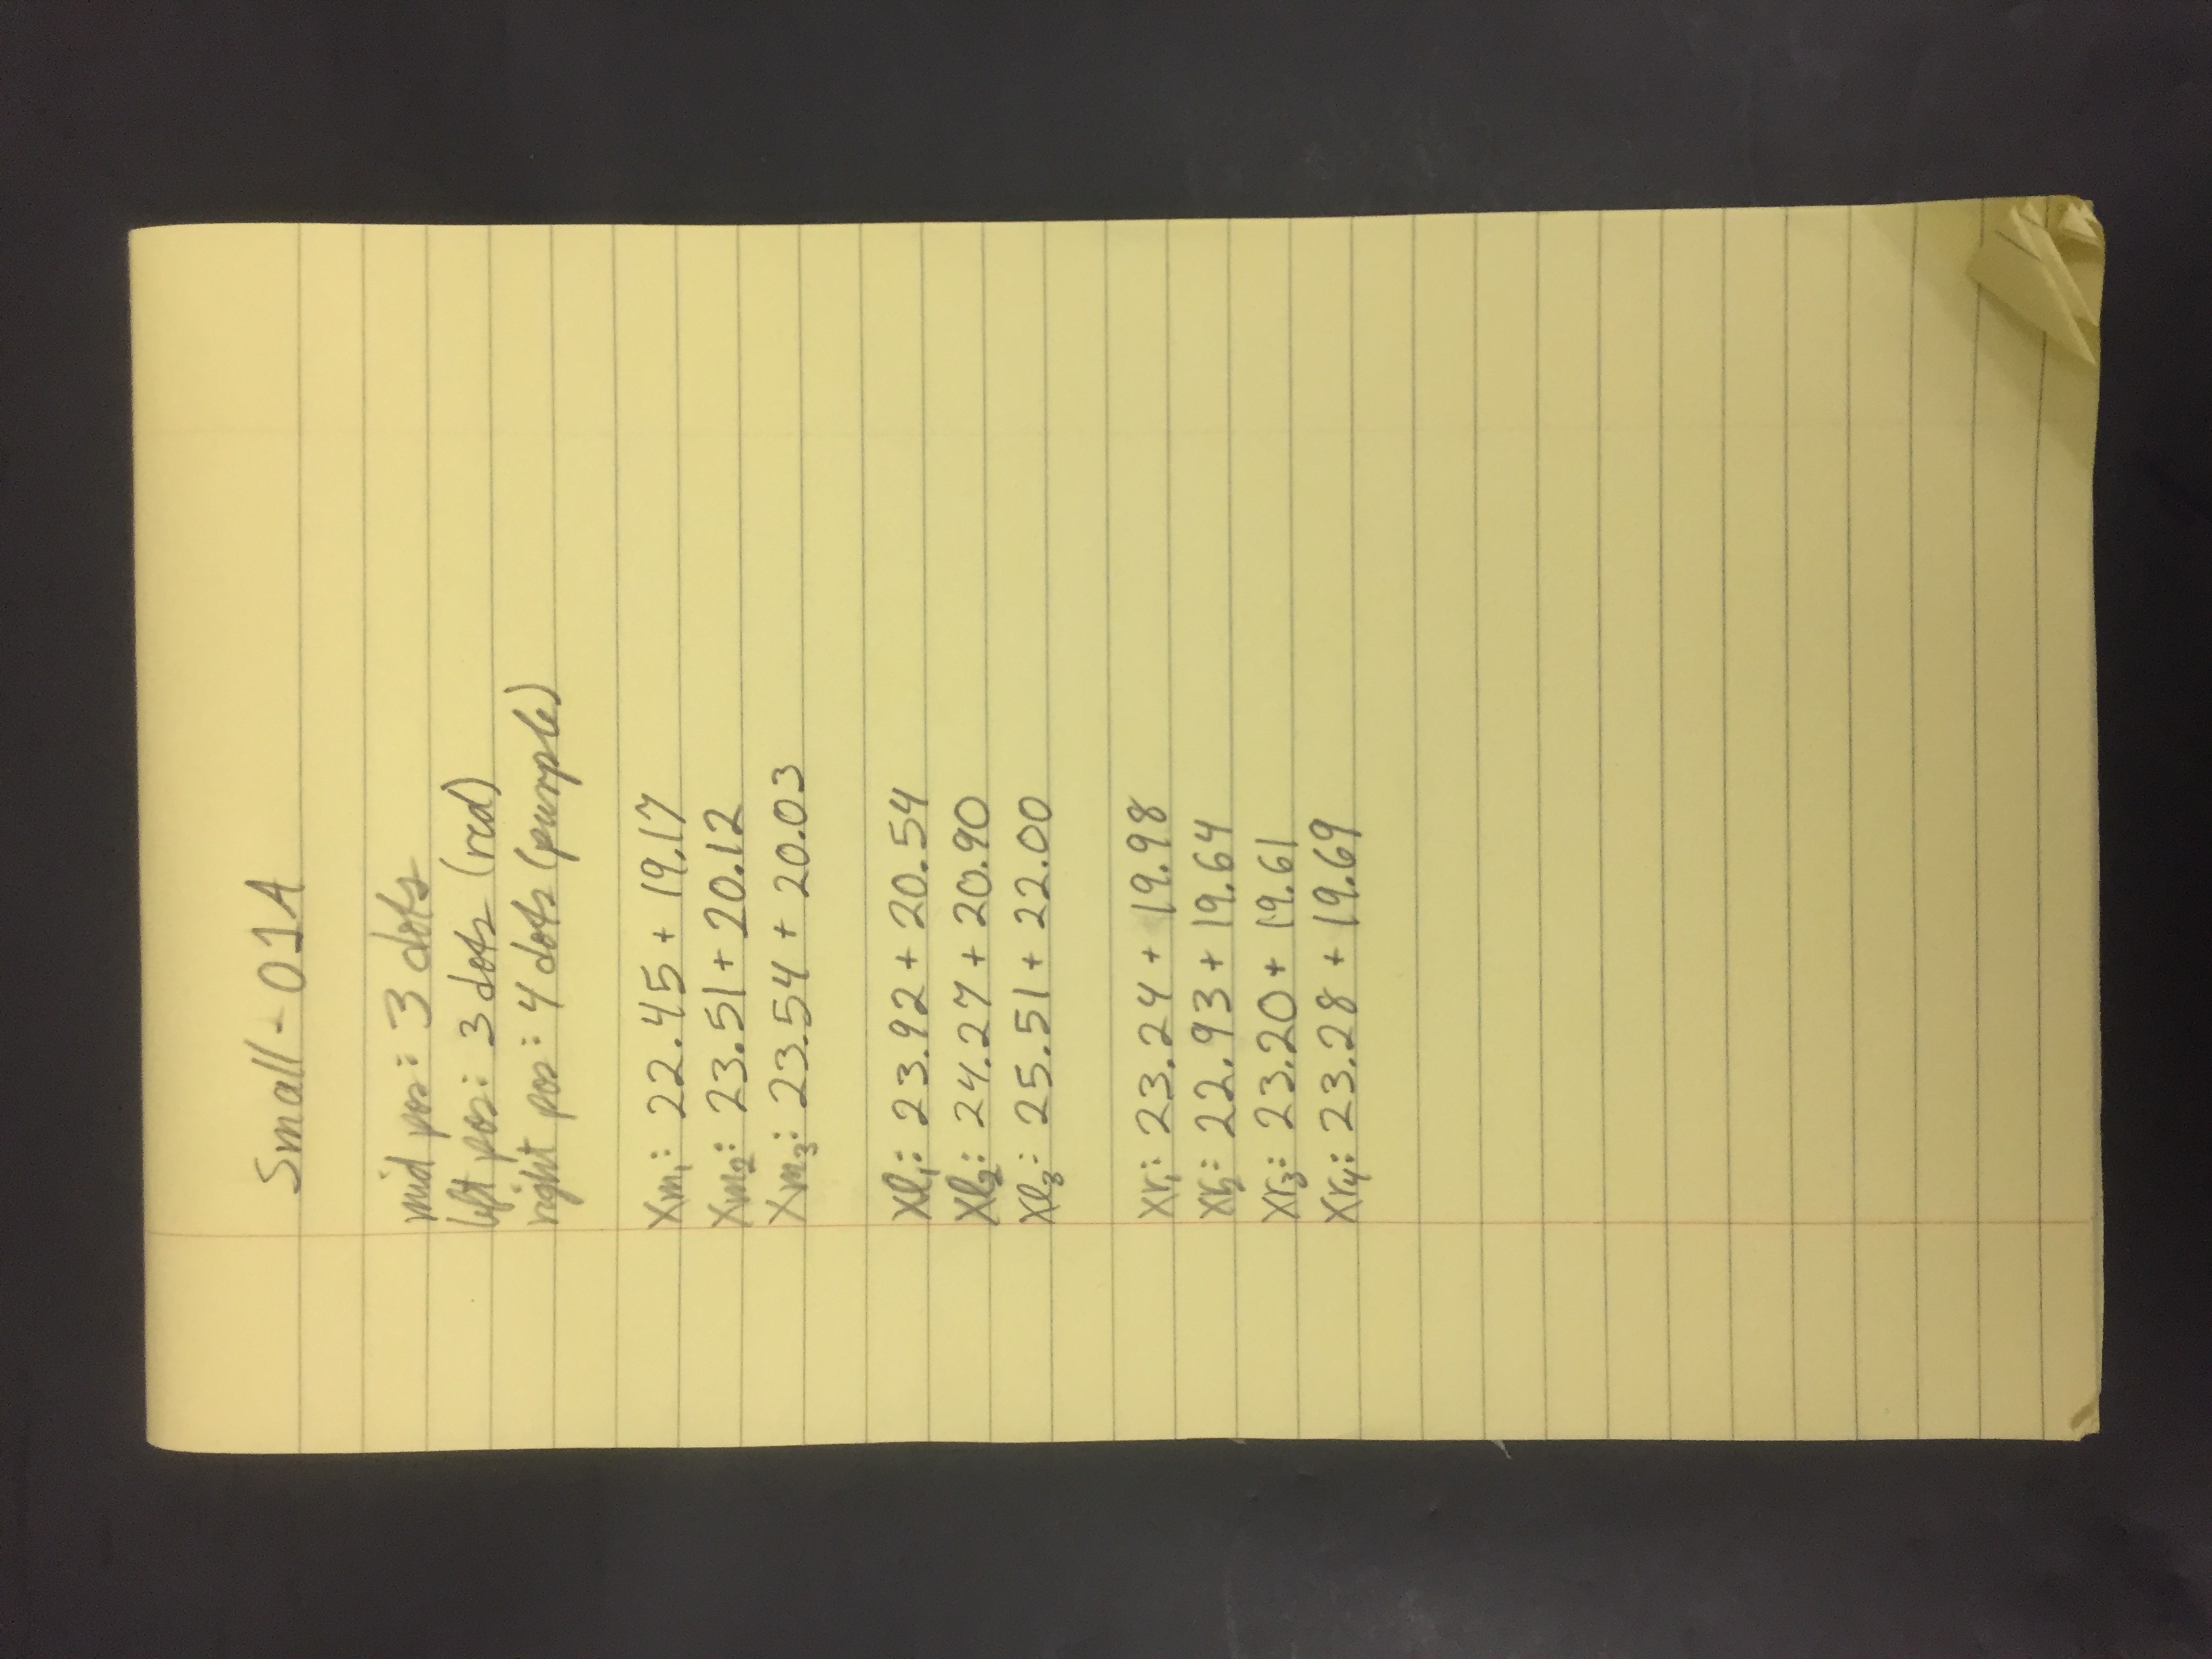 Small - 01A
mid pos: 3 dots
left pos: 3 dots (red)
right pos: 4 dots (purple)
Xm₁: 22.45 + 19.17
Xm₂: 23.51 + 20.12
Xm₃: 23.54 + 20.03
Xl₁: 23.92 + 20.54
Xl₂: 24.27 + 20.90
Xl₃: 25.51 + 22.00
Xr₁: 23.24 + 19.98
Xr₂: 22.93 + 19.64
Xr₃: 23.20 + 19.61
Xr₄: 23.28 + 19.69